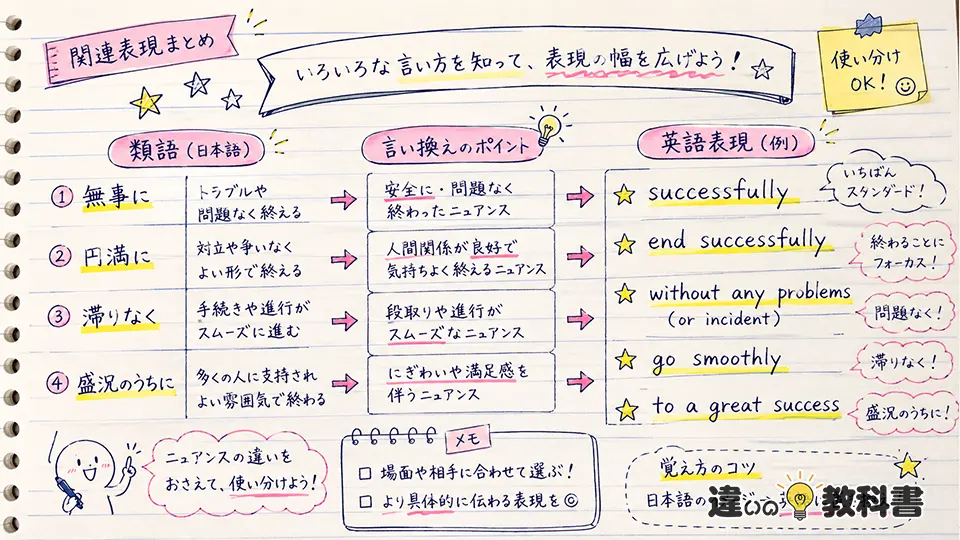 関連表現まとめ
いろいろな言い方を知って、表現の幅を広げよう！
使い分け
OK！
類語（日本語）
言い換えのポイント
英語表現（例）
① 無事に
トラブルや
問題なく終える
安全に・問題なく
終わったニュアンス
successfully
いちばん
スタンダード！
② 円満に
対立や争いなく
よい形で終える
人間関係が良好で
気持ちよく終えるニュアンス
end successfully
終わることに
フォーカス！
③ 滞りなく
手続きや進行が
スムーズに進む
段取りや進行が
スムーズなニュアンス
without any problems
(or incident)
問題なく！
④ 盛況のうちに
多くの人に支持され
よい雰囲気で終わる
にぎわいや満足感を
伴うニュアンス
go smoothly
滞りなく！
to a great success
盛況のうちに！
ニュアンスの違いを
おさえて、使い分けよう！
メモ
□ 場面や相手に合わせて選ぶ！
□ より具体的に伝わる表現を◎
覚え方のコツ
日本語の
違いの教科書